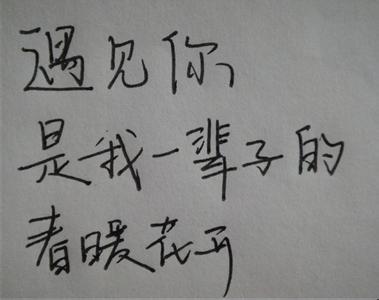 遇见你
是我一辈子的
春暖花开